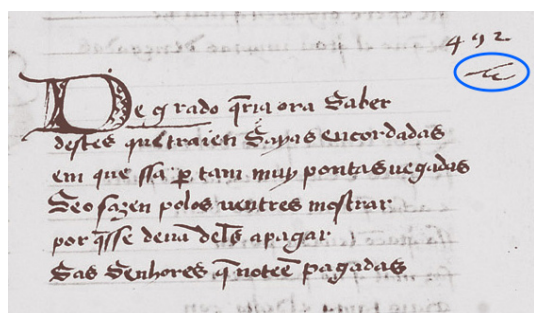 492
De grado q̄ria ora Saber
destes que traien Sayas encordadas
em que ssa ꝑtam muy pontas uegadas
Seo fazen polos uentres mostrar
por q̄sse deuā delꝭ apagar
Sas Senhores q̄ noteē pagadas